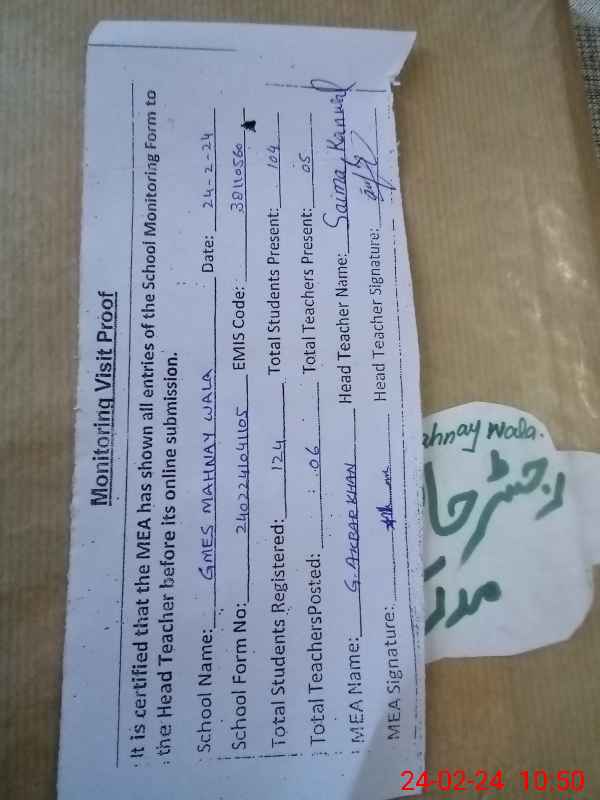 Monitoring Visit Proof
It is certified that the MEA has shown all entries of the School Monitoring Form to
the Head Teacher before its online submission.
School Name: GMES MAHNAY WALA Date: 24-2-24
School Form No: 2402241041105 EMIS Code: 38110560
Total Students Registered: 124 Total Students Present: 104
Total TeachersPosted: 06 Total Teachers Present: 05
MEA Name: G. AKBAR KHAN Head Teacher Name: Saima Kanwal
MEA Signature: Head Teacher Signature:
ahnay wala.
رجسٹر
24-02-24 10:50